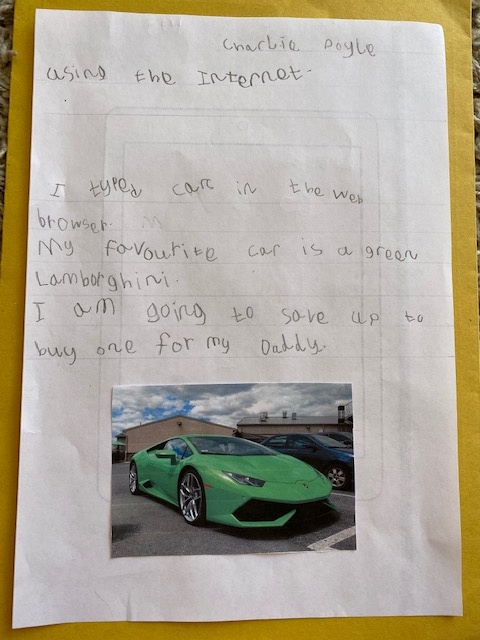 Charlie Doyle
using the Internet.
I typed cars in the web
browser.
My favourite car is a green
Lamborghini.
I am going to save up to
buy one for my Daddy.